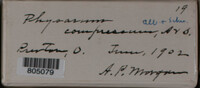 19
Physarum alb + lilac.
compressum, A & S.
Preston, O. June, 1902
805079 A. P. Morgan